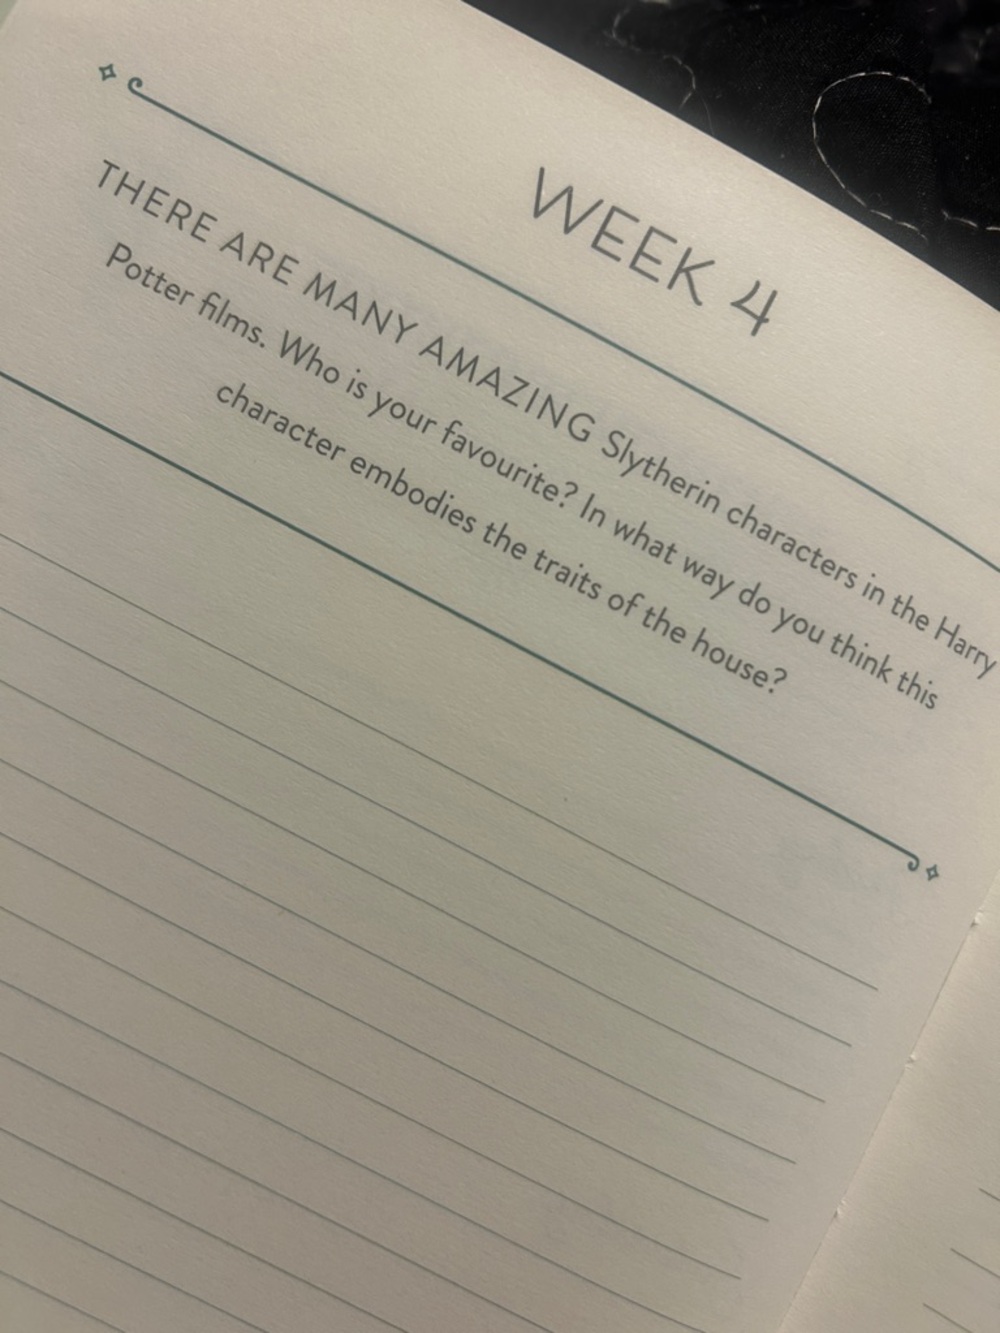 WEEK 4
THERE ARE MANY AMAZING Slytherin characters in the Harry
Potter films. Who is your favourite? In what way do you think this
character embodies the traits of the house?